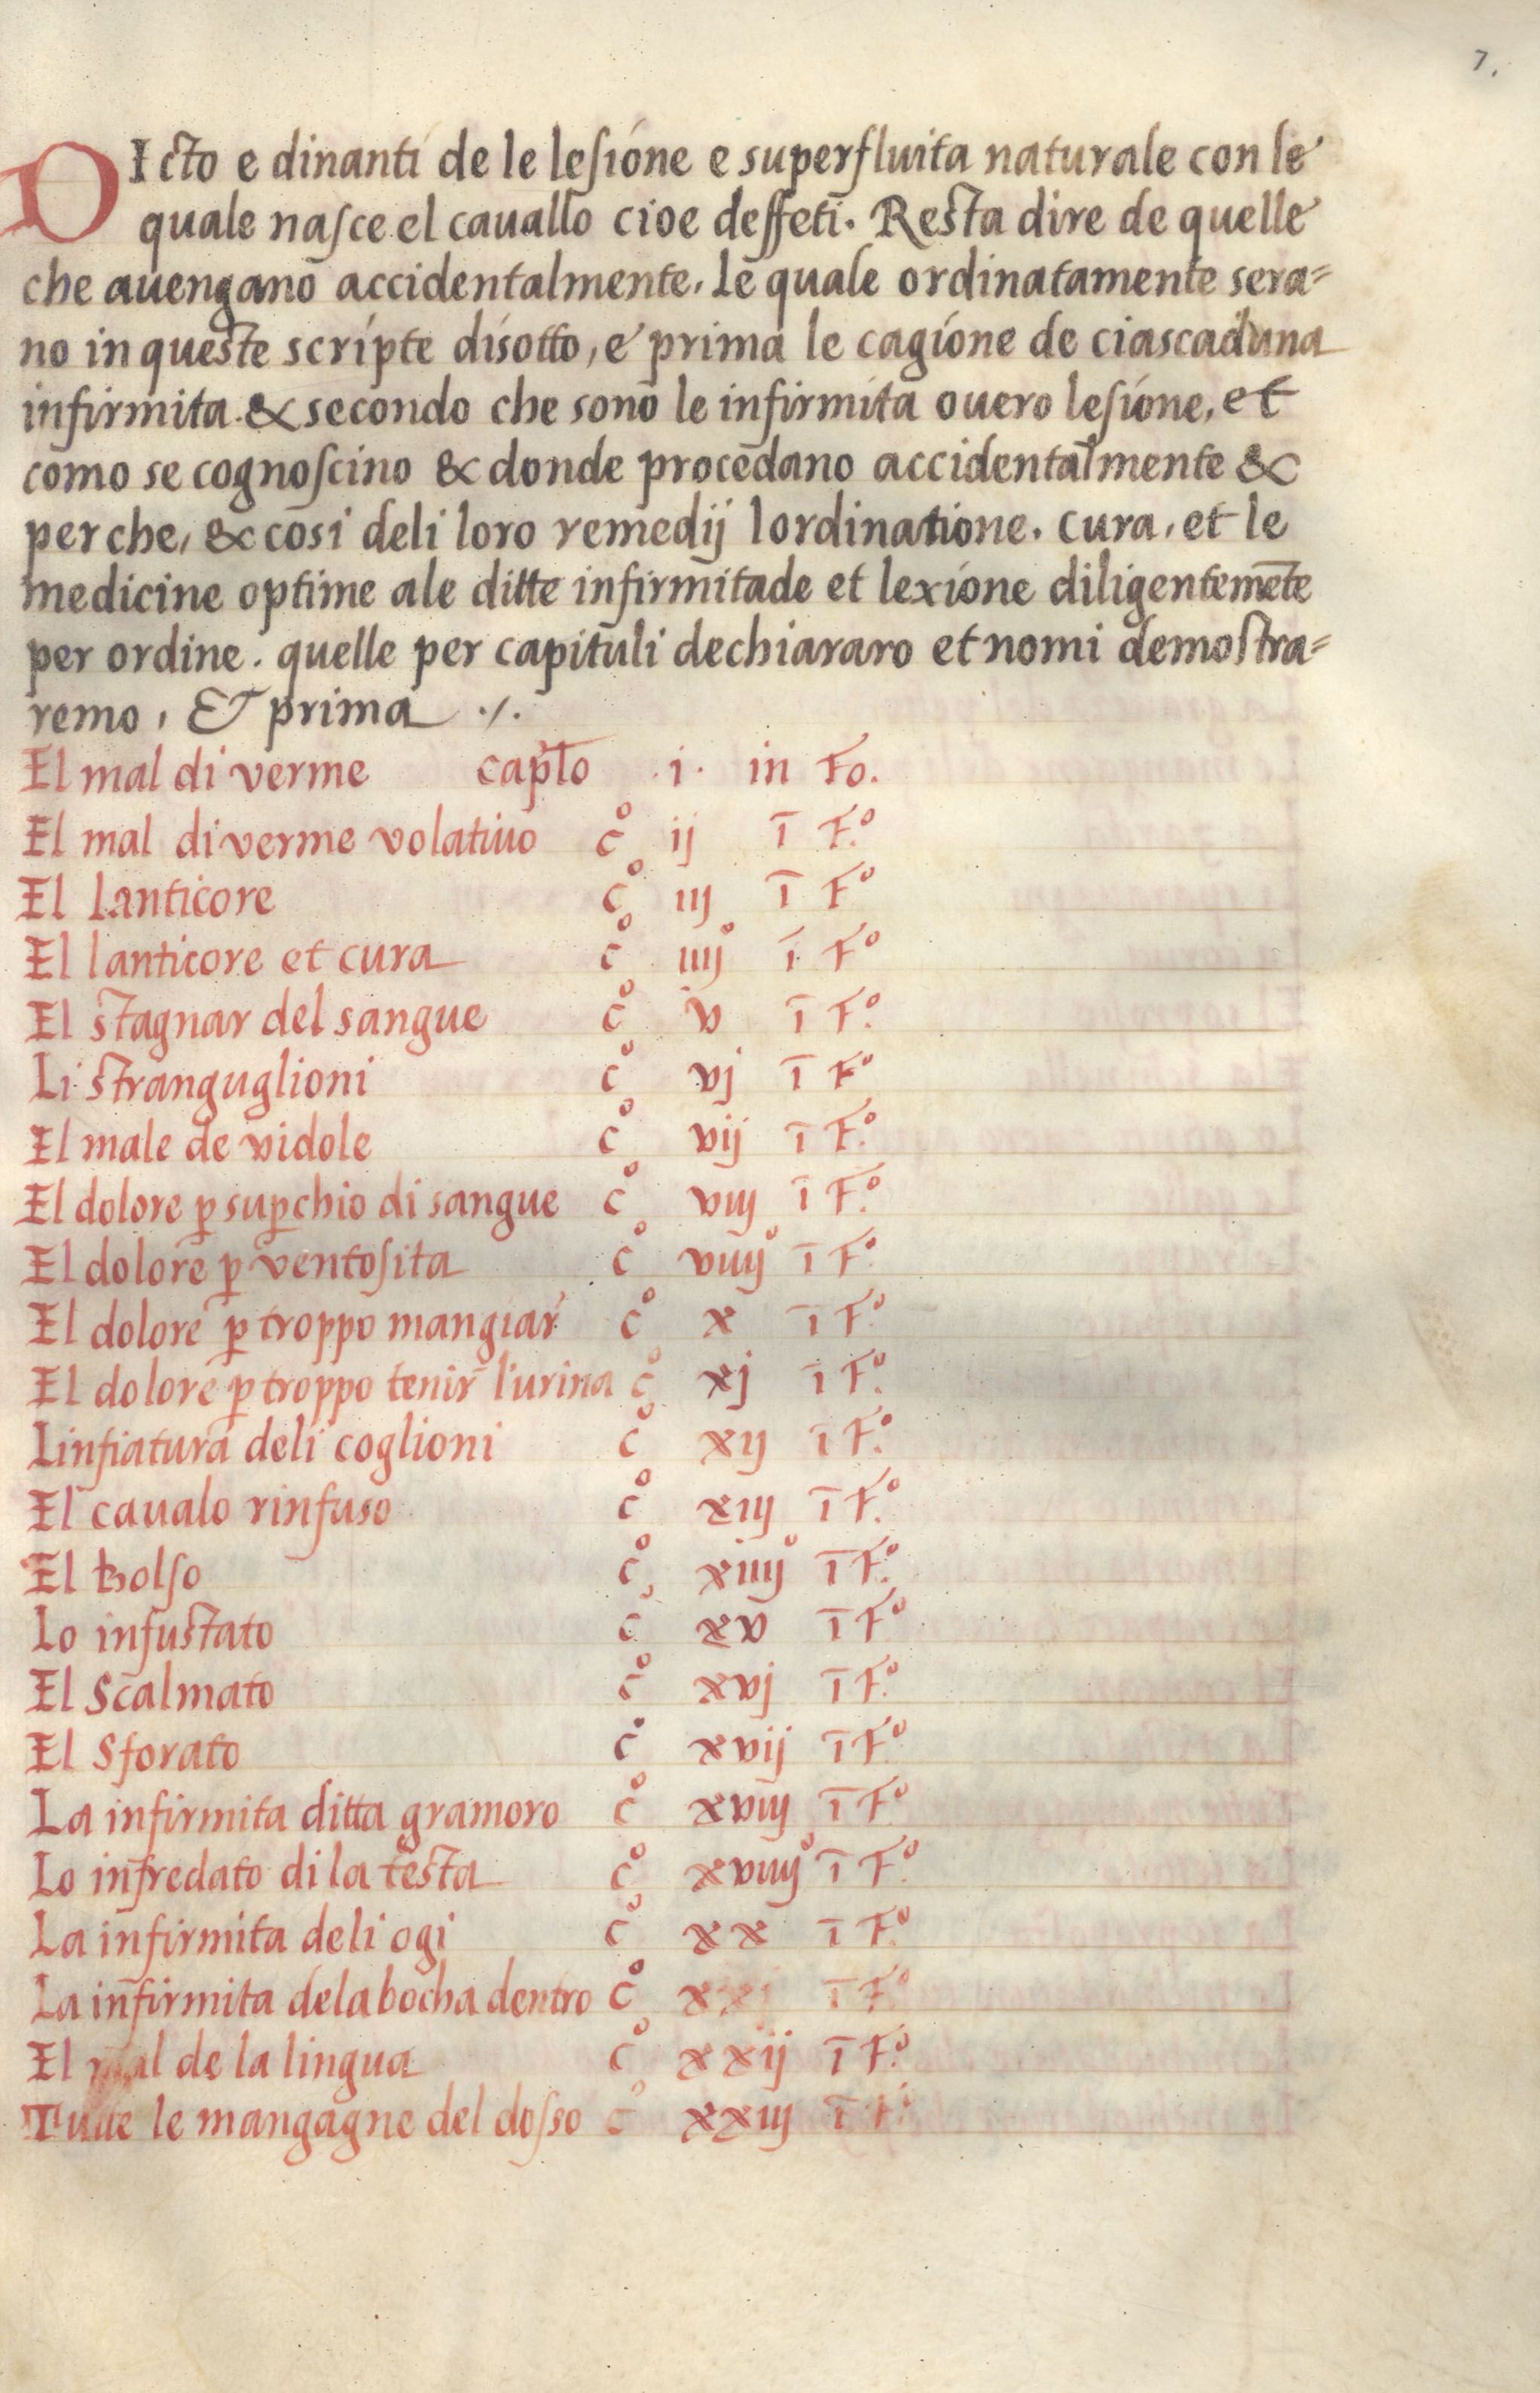 7.
DIcto e dinanti de le lesione e superfluita naturale con le
quale nasce el cauallo cioe deffeti. Resta dire de quelle
che auengano accidentalmente, le quale ordinatamente sera=
no in queste scripte disotto, e prima le cagione de ciascaduna
infirmita & secondo che sono le infirmita ouero lesione, et
como se cognoscino & donde procedano accidentalmente &
perche, & cosi deli loro remedij lordinatione. cura, et le
medicine optime ale ditte infirmitade et lexione diligentemēte
per ordine. quelle per capituli dechiararo et nomi demostra=
remo, & prima ./.
El mal di verme capto .i. in Fo.
El mal di verme volatiuo cº ij ī Fº.
El Lanticore cº iij ī Fº
El lanticore et cura cº iiijº ī Fº
El stagnar del sangue cº v ī Fº.
Li stranguglioni cº vj ī Fº
El male de vidole cº vij ī Fº.
El dolore ꝑ suꝑchio di sangue cº viij ī Fº.
El dolore ꝑ ventosita cº viiijº ī Fº.
El dolore ꝑ troppo mangiar̄ cº x ī Fº.
El dolore ꝑ troppo tenir̄ l'urina cº xj ī Fº.
Linfiatura deli coglioni cº xij ī Fº.
El caualo rinfuso cº xiij ī Fº.
El bolso cº xiiijº ī Fº.
Lo infustato cº xv ī Fº
El Scalmato cº xvj ī Fº.
El Sforato cº xvij ī Fº.
La infirmita ditta gramoro cº xviij ī Fº
Lo infredato di la testa cº xviiijº ī Fº.
La infirmita deli ogi cº xx ī Fº.
La infirmita dela bocha dentro cº xxj ī Fº
El mal de la lingua cº xxij ī Fº.
Tutte le mangagne del dosso cº xxiij ī Fº